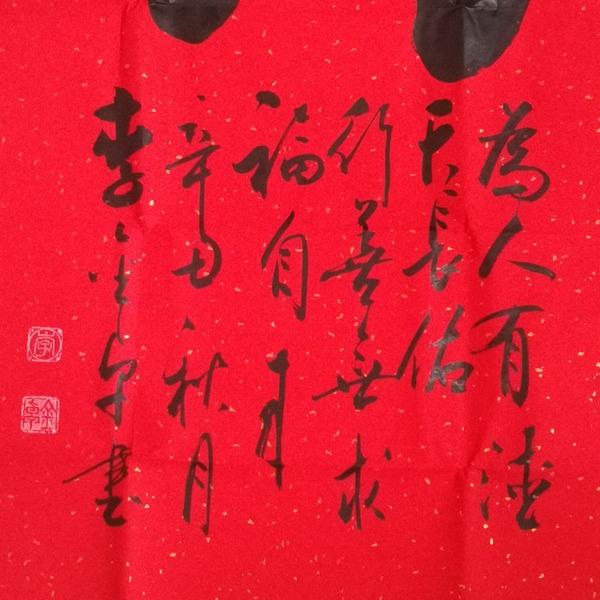 為人有德
天長佑
行善無求
福自来
辛丑秋月
李金卓書